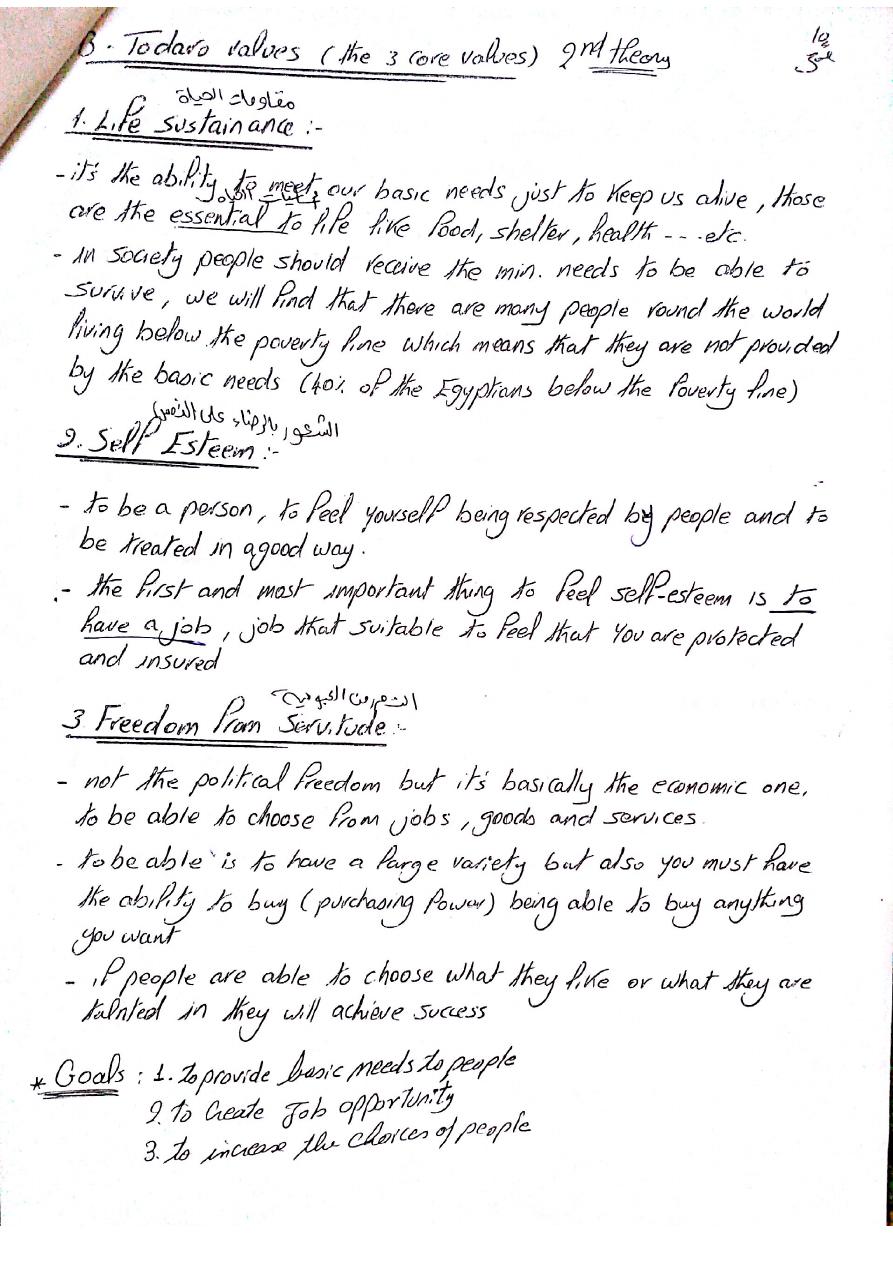 B. Todaro values (the 3 core values) 2nd theory
10
مقاومات الحياة
1. Life Sustainance :-
- it's the ability to meet our basic needs just to keep us alive, those
are the essential to life like food, shelter, health --- .etc.
- in society people should receive the min. needs to be able to
survive, we will find that there are many people round the world
living below the poverty line which means that they are not provided
by the basic needs (40% of the Egyptians below the Poverty line)
الشعور بالرضاء على النفس
2. Self Esteem :-
- to be a person, to feel yourself being respected by people and to
be treated in a good way.
- the first and most important thing to feel self-esteem is to
have a job, job that suitable to feel that you are protected
and insured
العبودية
3 Freedom from Servitude :-
- not the political freedom but it's basically the economic one,
to be able to choose from jobs, goods and services.
- to be able is to have a large variety but also you must have
the ability to buy (purchasing Power) being able to buy anything
you want
- if people are able to choose what they like or what they are
talnted in they will achieve success
* Goals : 1. to provide basic needs to people
2. to Create Job opportunity
3. to increase the choices of people